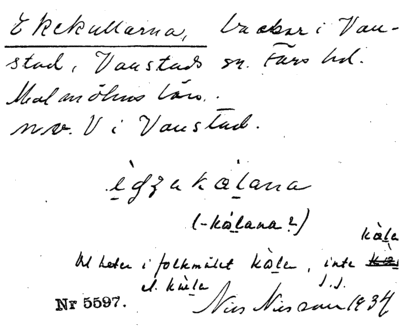 Ekekullarna, backar i Van-
stad, Vanstads sn. Färs hd.
Malmöhus län.
nv. V i Vanstad.
ègzakạ̀lana
(-kålana?)
kålе
heter i folkmålet kåle, inte
el. J.S.
Nr 5597. Nils Nilsson 1934